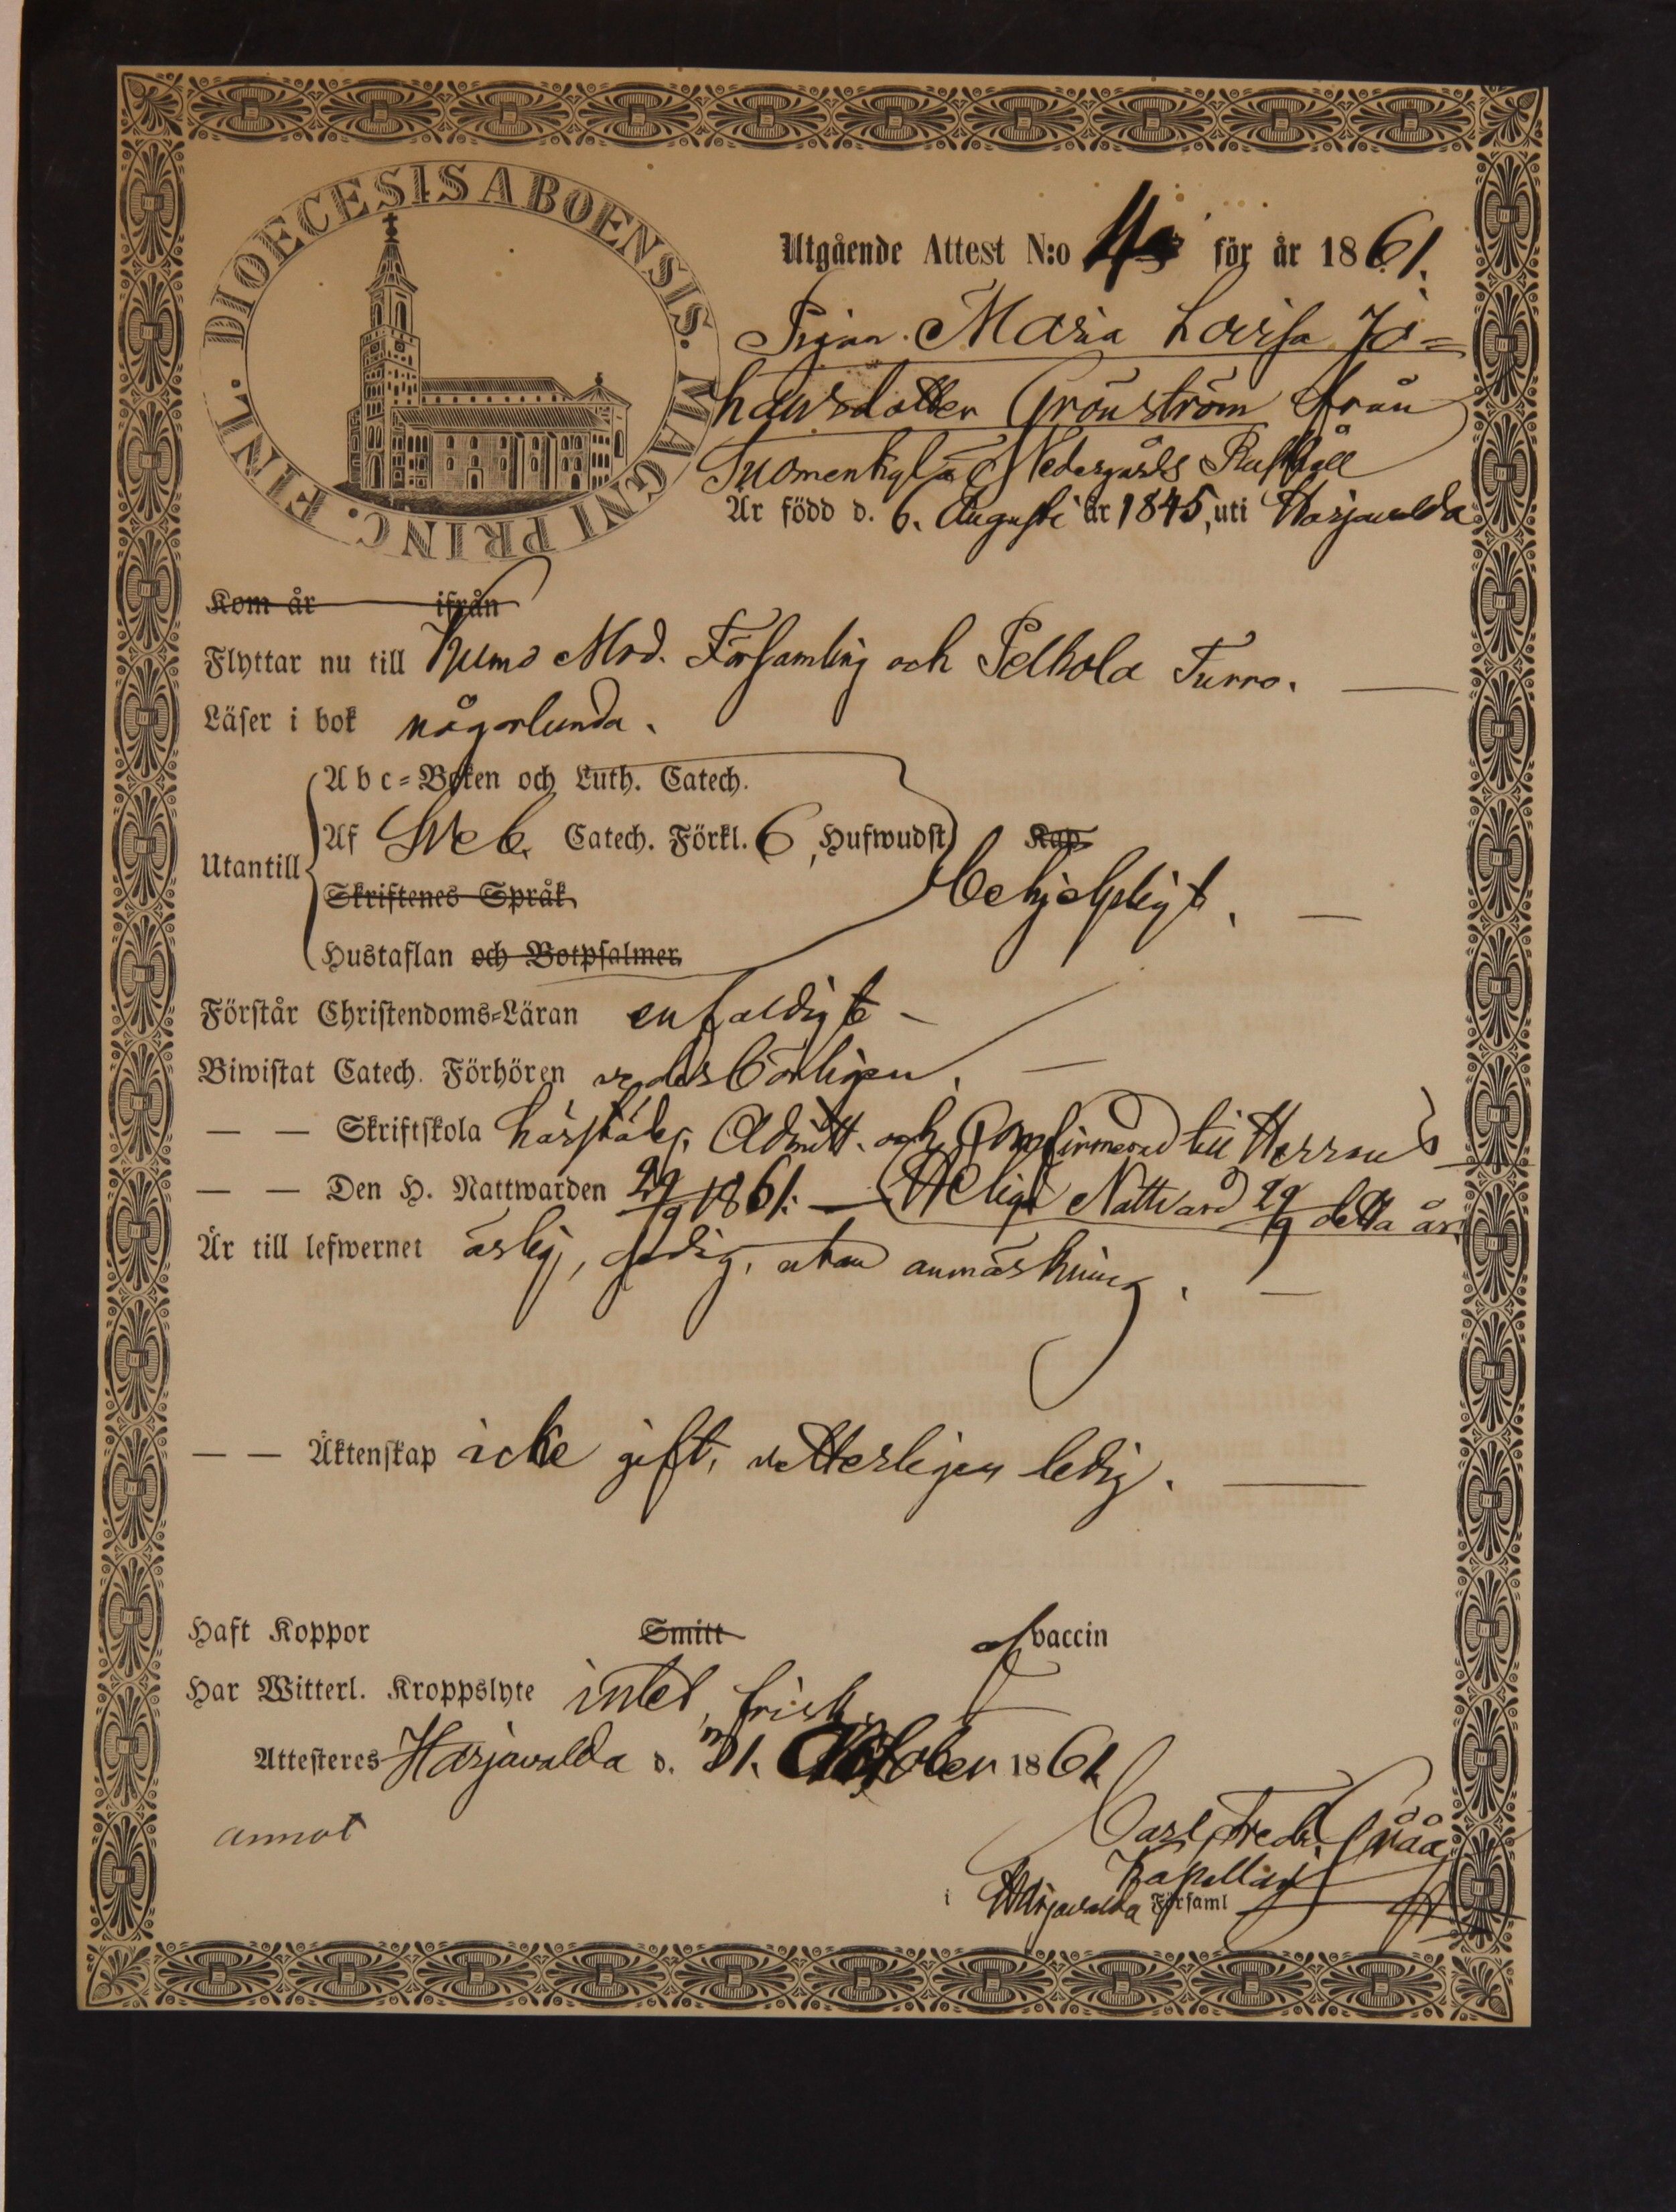 DIOECESIS ABOENSIS. MAGNI PRINC. FINL.
Utgående Attest N:o för år 1861.
Pigan Maria Lovisa Jo=
hansdotter Grönström från
Suomenkylä Nedergårds Rusthåll
Är född d. 6. Augusti år 1845, uti Harjavalda
Kom år ifrån
Flyttar nu till Kumo Mod. Församling och Pelhola Turro.
Läser i bok någorlunda.
Abc=Boken och Luth. Catech.
Utantill
Af Sveb. Catech. Förkl. 6, Hufwudst. Kap.
Skriftenes Språk,
behjelpligt.
Hustaflan och Botpsalmer.
Förstår Christendoms=Läran enfaldigt
Biwistat Catech. Förhören vederbörligen.
— — Skriftskola härstädes, Admitt. och Confirmerad till Herrans
— — Den H. Nattwarden 29/9 1861. — Heliga Nattvard 29/9 detta år.
Är till lefwernet ärlig, sedig, utan anmärkning.
— — Äktenskap icke gift, vetterligen ledig.
Haft Koppor Smitt af vaccin
Har Witterl. Kroppslyte intet, frisk.
Attesteres Harjavalda d. 31. Oktober 1861
annot
Carl Fredr. Gråå
Kapellan
i Harjavalda Församl